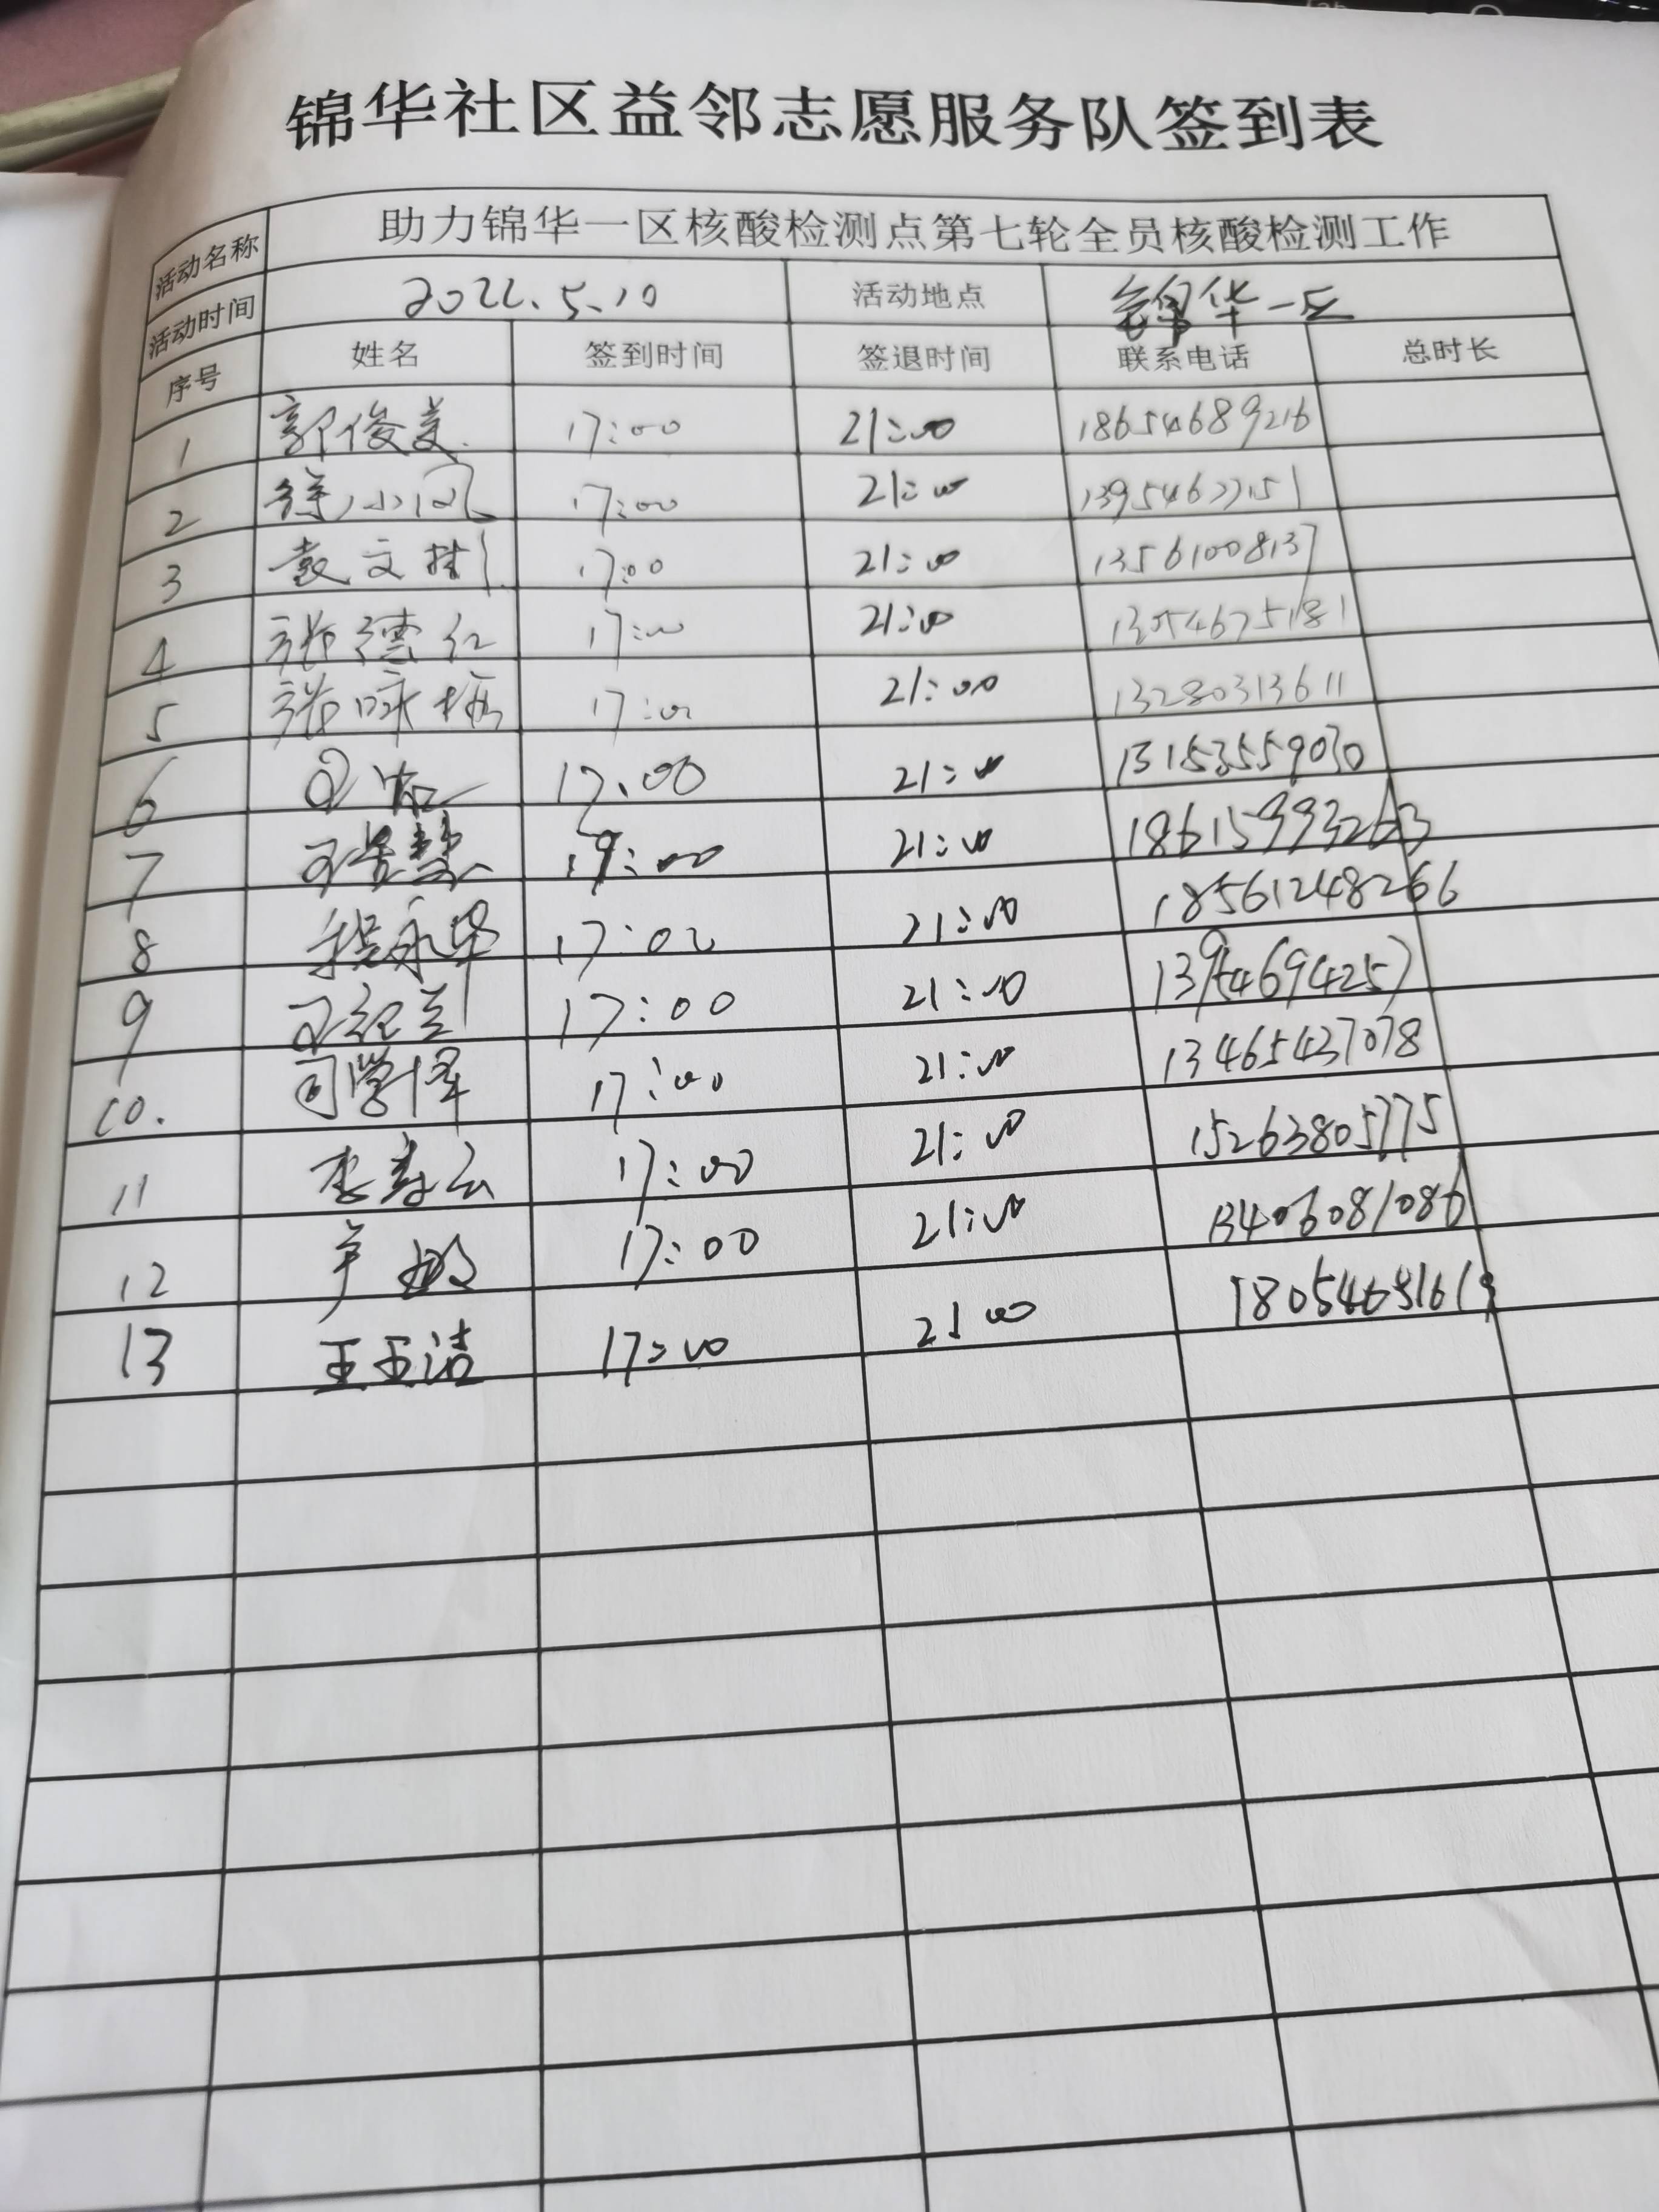 锦华社区益邻志愿服务队签到表
活动名称 助力锦华一区核酸检测点第七轮全员核酸检测工作
活动时间 2022.5.10 活动地点 锦华一区
序号 姓名 签到时间 签退时间 联系电话 总时长
1 郭俊美 17:00 21:00 18654689216
2 小凤 17:00 21:00 13954677151
3 袁文彬 17:00 21:00 13561008137
4 张德红 17:00 21:00 13054675181
5 张咏梅 17:00 21:00 13280313611
6 17:00 21:00 13153559030
7 17:00 21:00 18615993263
8 程永华 17:00 21:00 18561248266
9 王纪兰 17:00 21:00 13954694257
10. 司学怿 17:00 21:00 13465437078
11 李寿云 17:00 21:00 15263805775
12 芦敏 17:00 21:00 13406081086
13 王玉洁 17:00 21:00